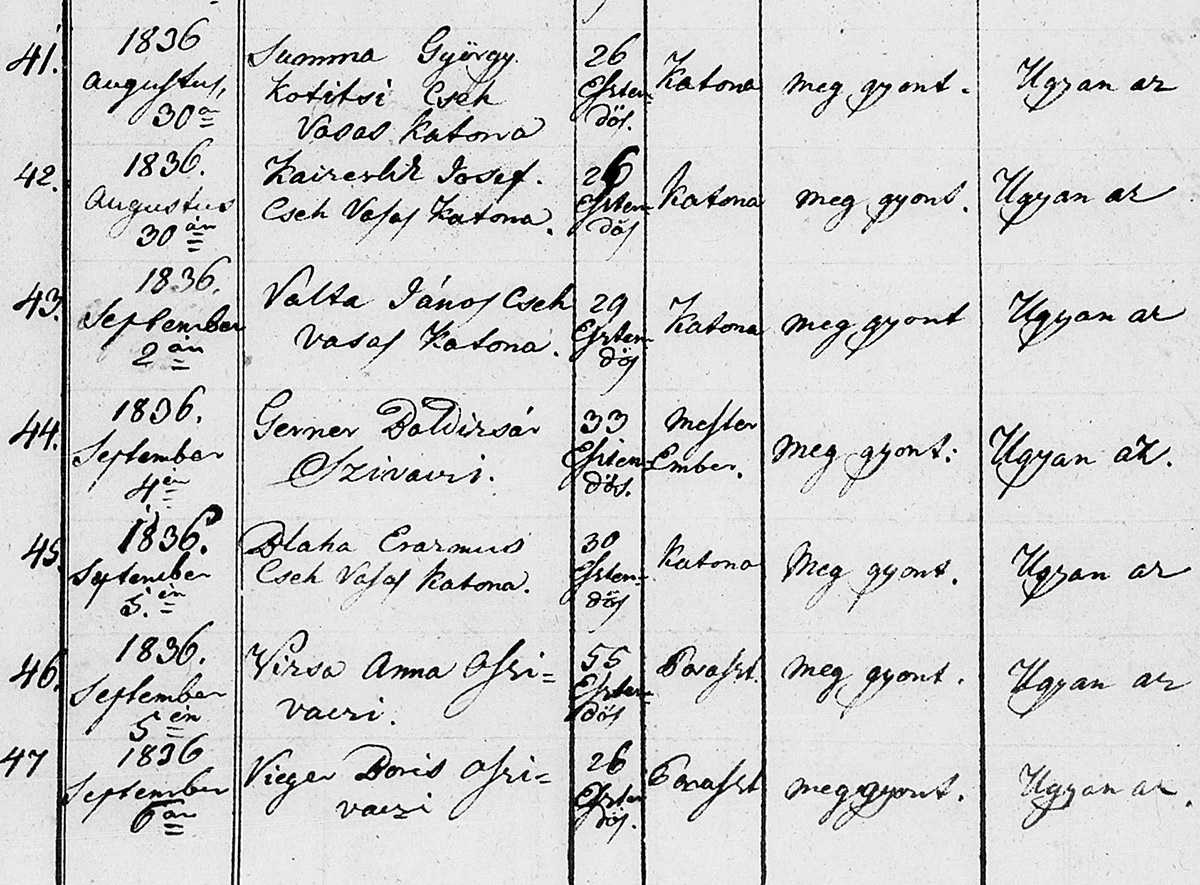 41. 1836 Summa György 26 Katona meg gyont. Ugyan az
Augustus, Kotitsi Cseh Eszten-
30án Vasas Katona dős.
42. 1836. Josef. 26 Katona meg gyont. Ugyan az
Augustus Cseh Vasas Katona. Eszten-
30 án dős
43. 1836. Valta János Cseh 29 Katona meg gyont Ugyan az
September vasas Katona. Eszten-
2 án dős
44. 1836. Gerner Boldizsár 33 Mester meg gyont: Ugyan az.
September Eszten- Ember.
4 én dős.
45. 1836. Blaha Erazmus 30 Katona Meg gyont. Ugyan az
September Cseh Vasas Katona. Eszten-
5. én dős
46. 1836. Virsa Anna Oszi= 55 Paraszt. meg gyont. Ugyan az
September vaczi. Eszten-
5 én dős
47 1836 Vieger Boris Oszi= 26 Paraszt meg gyont. Ugyan az.
September vaczi Eszten
6 án dős.